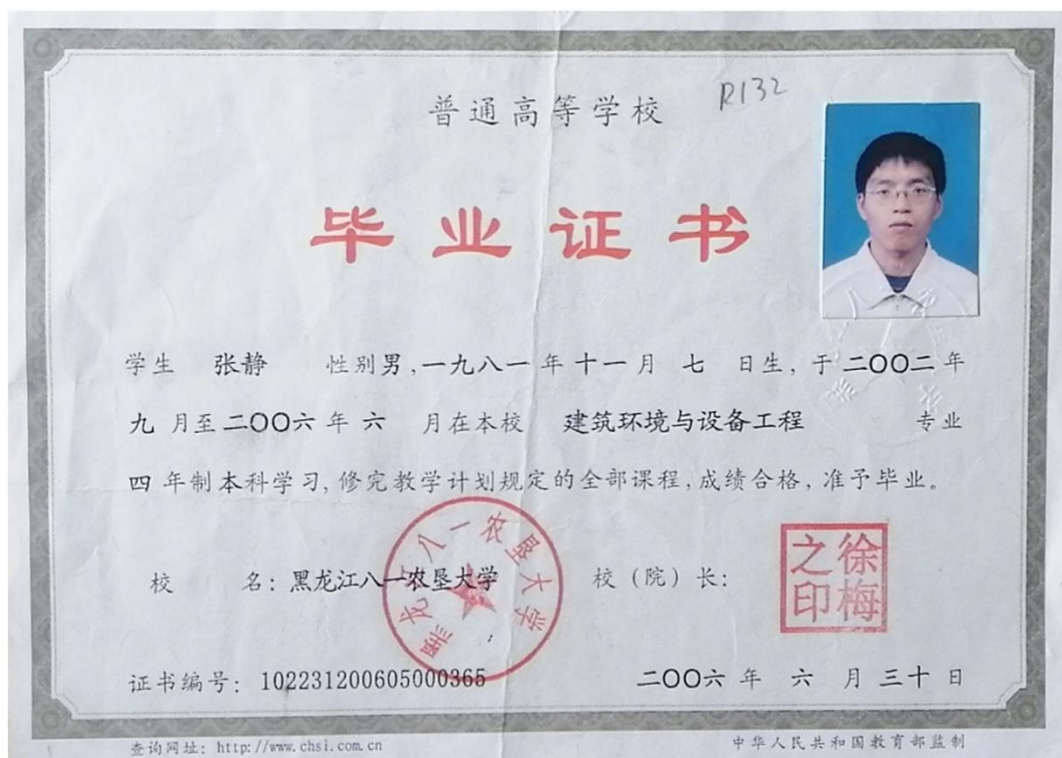 普通高等学校
R132
毕业证书
学生 张静 性别男,一九八一年十一月七日生,于二〇〇二年
九月至二〇〇六年六月在本校 建筑环境与设备工程 专业
四年制本科学习,修完教学计划规定的全部课程,成绩合格,准予毕业。
校 名:黑龙江八一农垦大学 校(院)长:
黑龙江八一农垦大学
徐梅之印
证书编号:102231200605000365 二〇〇六年六月三十日
查询网址:http://www.chsi.com.cn 中华人民共和国教育部监制